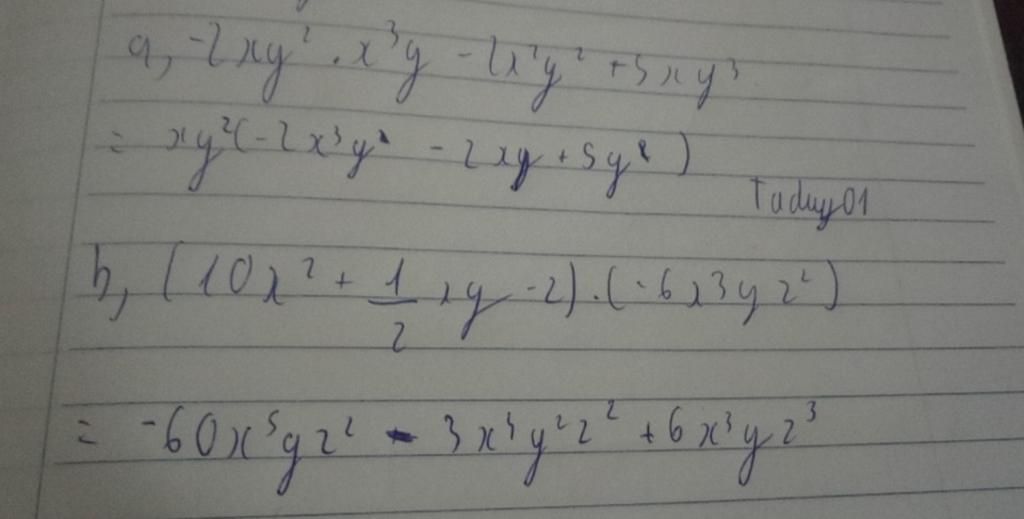 a, -2xy² . x³y - 2x²y² + 5xy³
= xy²(-2x³y - 2xy + 5y)
Taduy01
b, (10x² + 1/2 xy - z).(-6x3yz²)
= -60x⁵yz² - 3x⁴y²z² + 6x³yz³